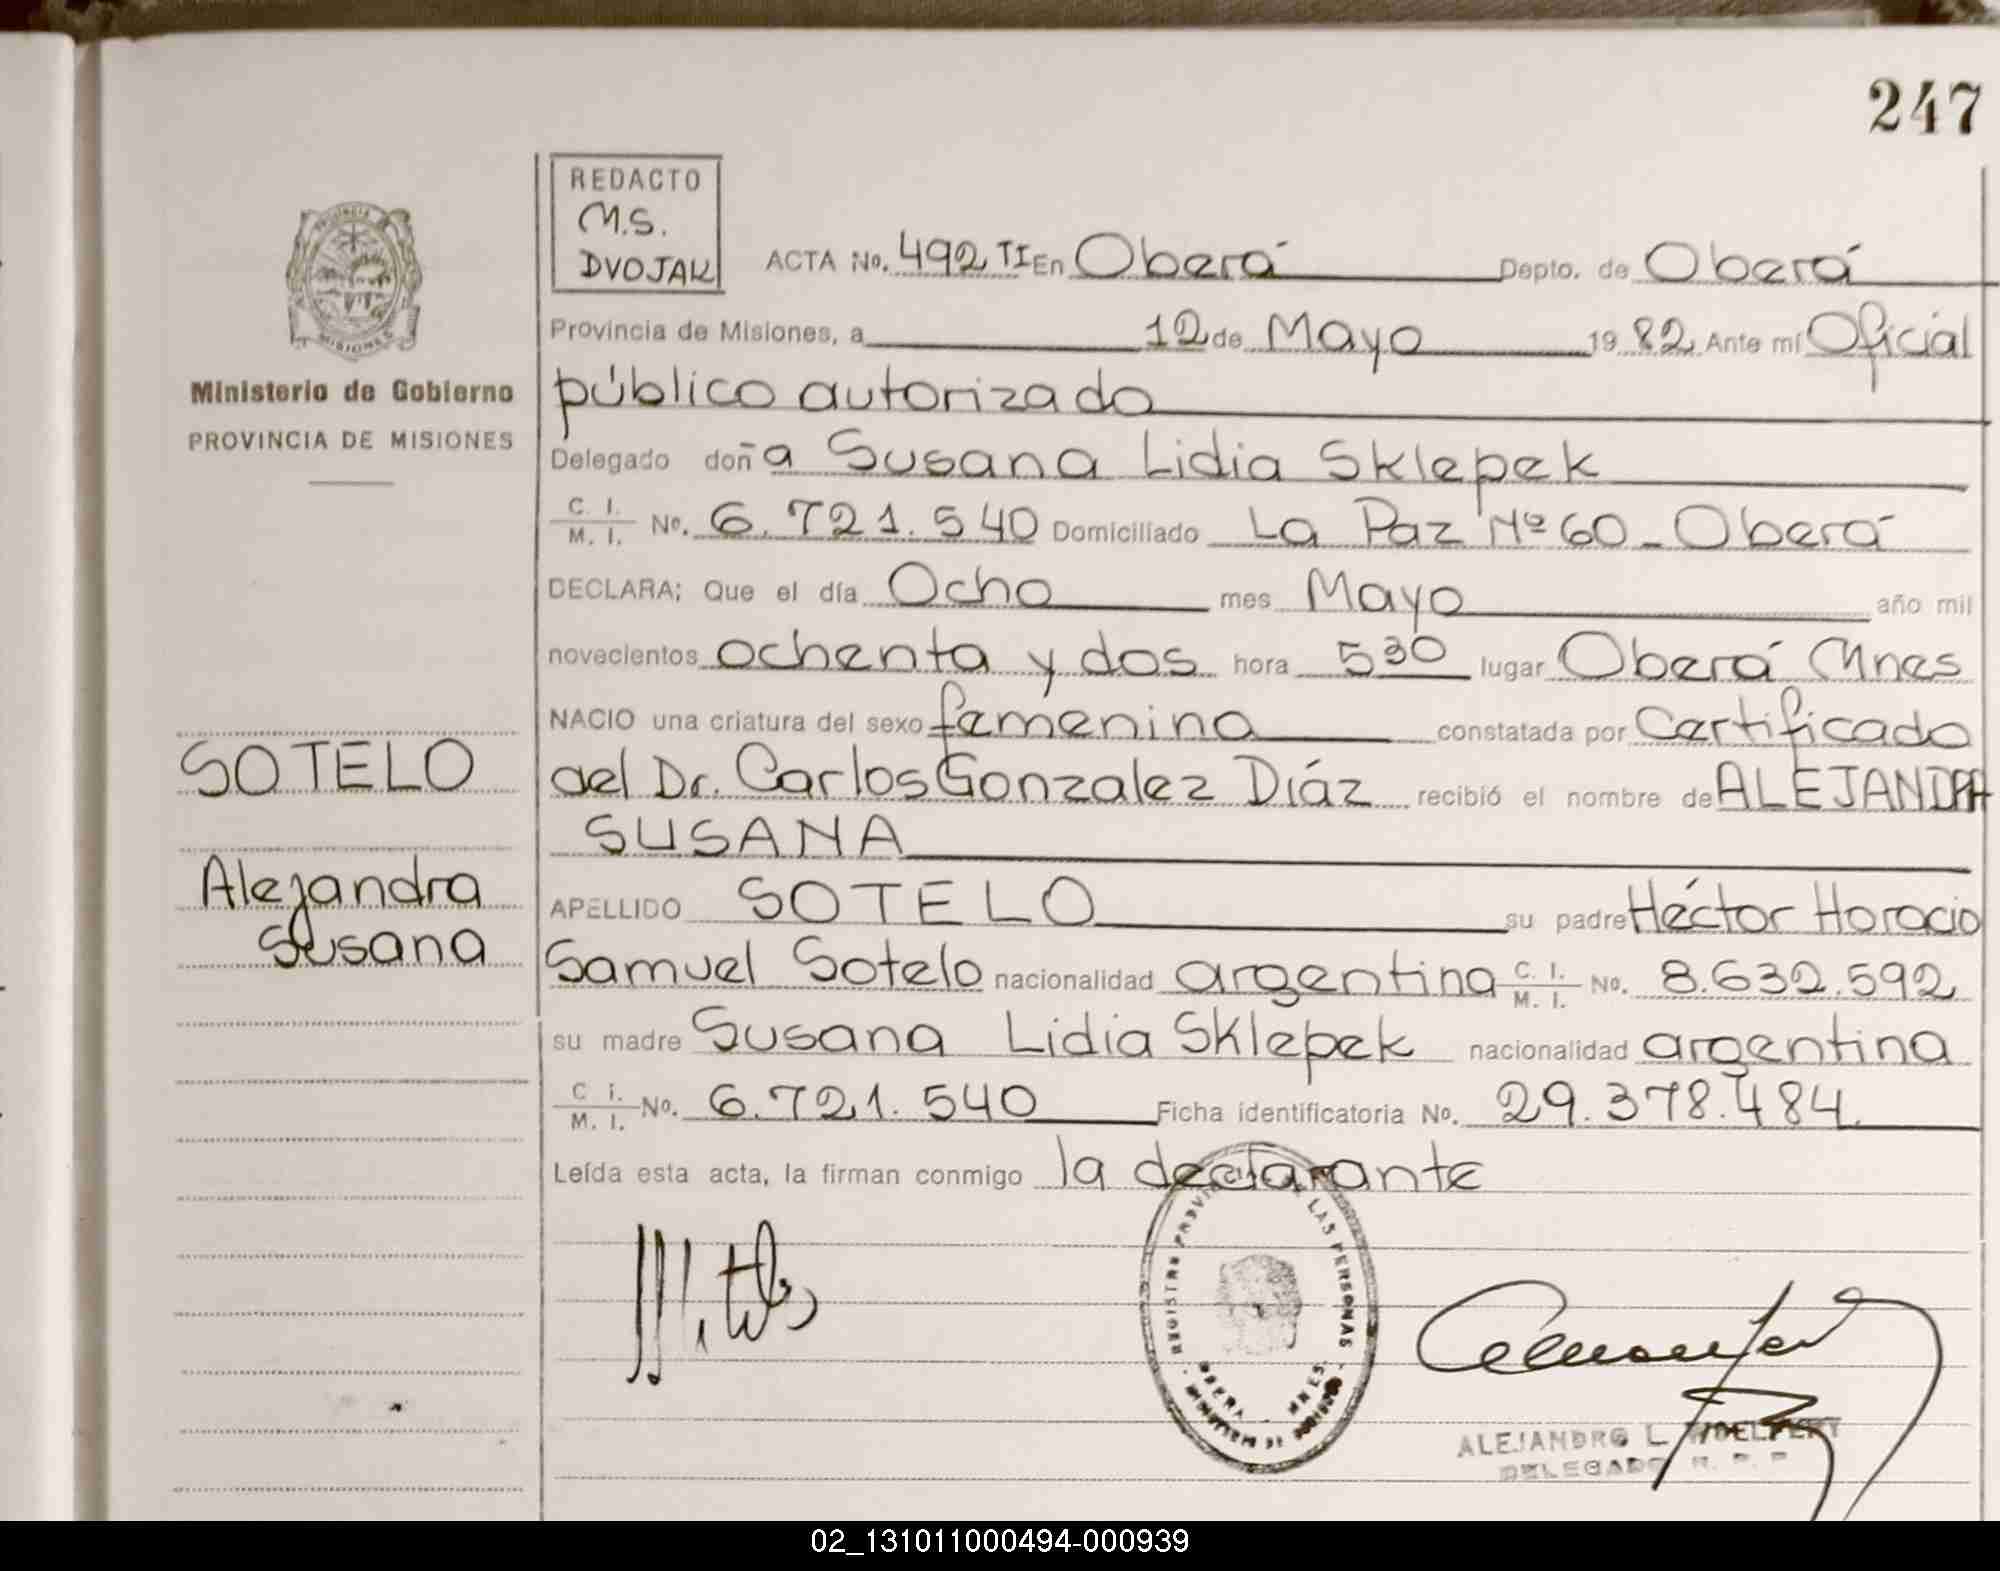 247
REDACTO
M.S.
DVOJAK
ACTA No. 492 TI En Oberá Depto. de Oberá
Provincia de Misiones, a 12 de Mayo 19 82 Ante mí Oficial
público autorizado
Ministerio de Gobierno
PROVINCIA DE MISIONES
Delegado doña Susana Lidia Sklepek
C. I. / M. I. No. 6.721.540 Domiciliado La Paz Nº 60 - Oberá
DECLARA; Que el día Ocho mes Mayo año mil
novecientos ochenta y dos hora 530 lugar Oberá Mnes
NACIO una criatura del sexo femenino constatada por Certificado
SOTELO
del Dr. Carlos Gonzalez Díáz recibió el nombre de ALEJANDRA
SUSANA
Alejandra
Susana
APELLIDO SOTELO su padre Héctor Horacio
Samuel Sotelo nacionalidad argentina C. I. / M. I. No. 8.632.592
su madre Susana Lidia Sklepek nacionalidad argentina
C i. / M. I. No. 6.721.540 Ficha identificatoria No. 29.378.484.
Leída esta acta, la firman conmigo la declarante
REGISTRO PROVINCIAL DE LAS PERSONAS
OBERA MNES.
MINISTERIO DE GOBIERNO
ALEJANDRO L. WOELFERT
DELEGADO R. P. P.
02_131011000494-000939